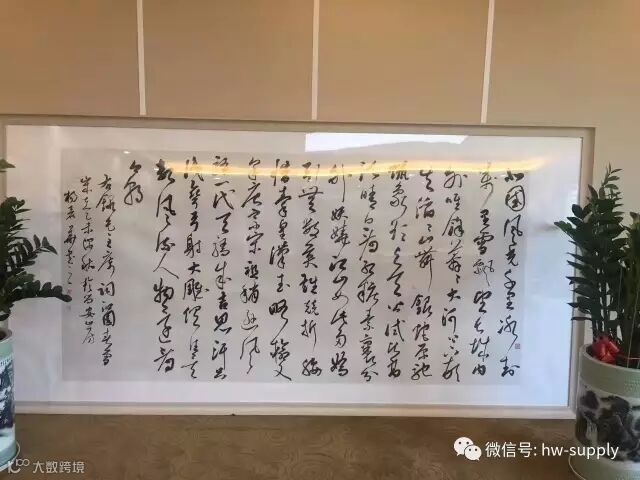 北国风光千里冰封
万里雪飘望长城内
外唯馀莽莽大河上下顿
失滔滔山舞银蛇原驰
蜡象欲与天公试比高
须晴日看红装素裹分
外妖娆江山如此多娇
引无数英雄竞折腰
惜秦皇汉武略输文
采唐宗宋祖稍逊风
骚一代天骄成吉思汗只
识弯弓射大雕俱往矣
数风流人物还看
今朝
右录毛主席词沁园春雪
微信号: hw-supply
大数跨境